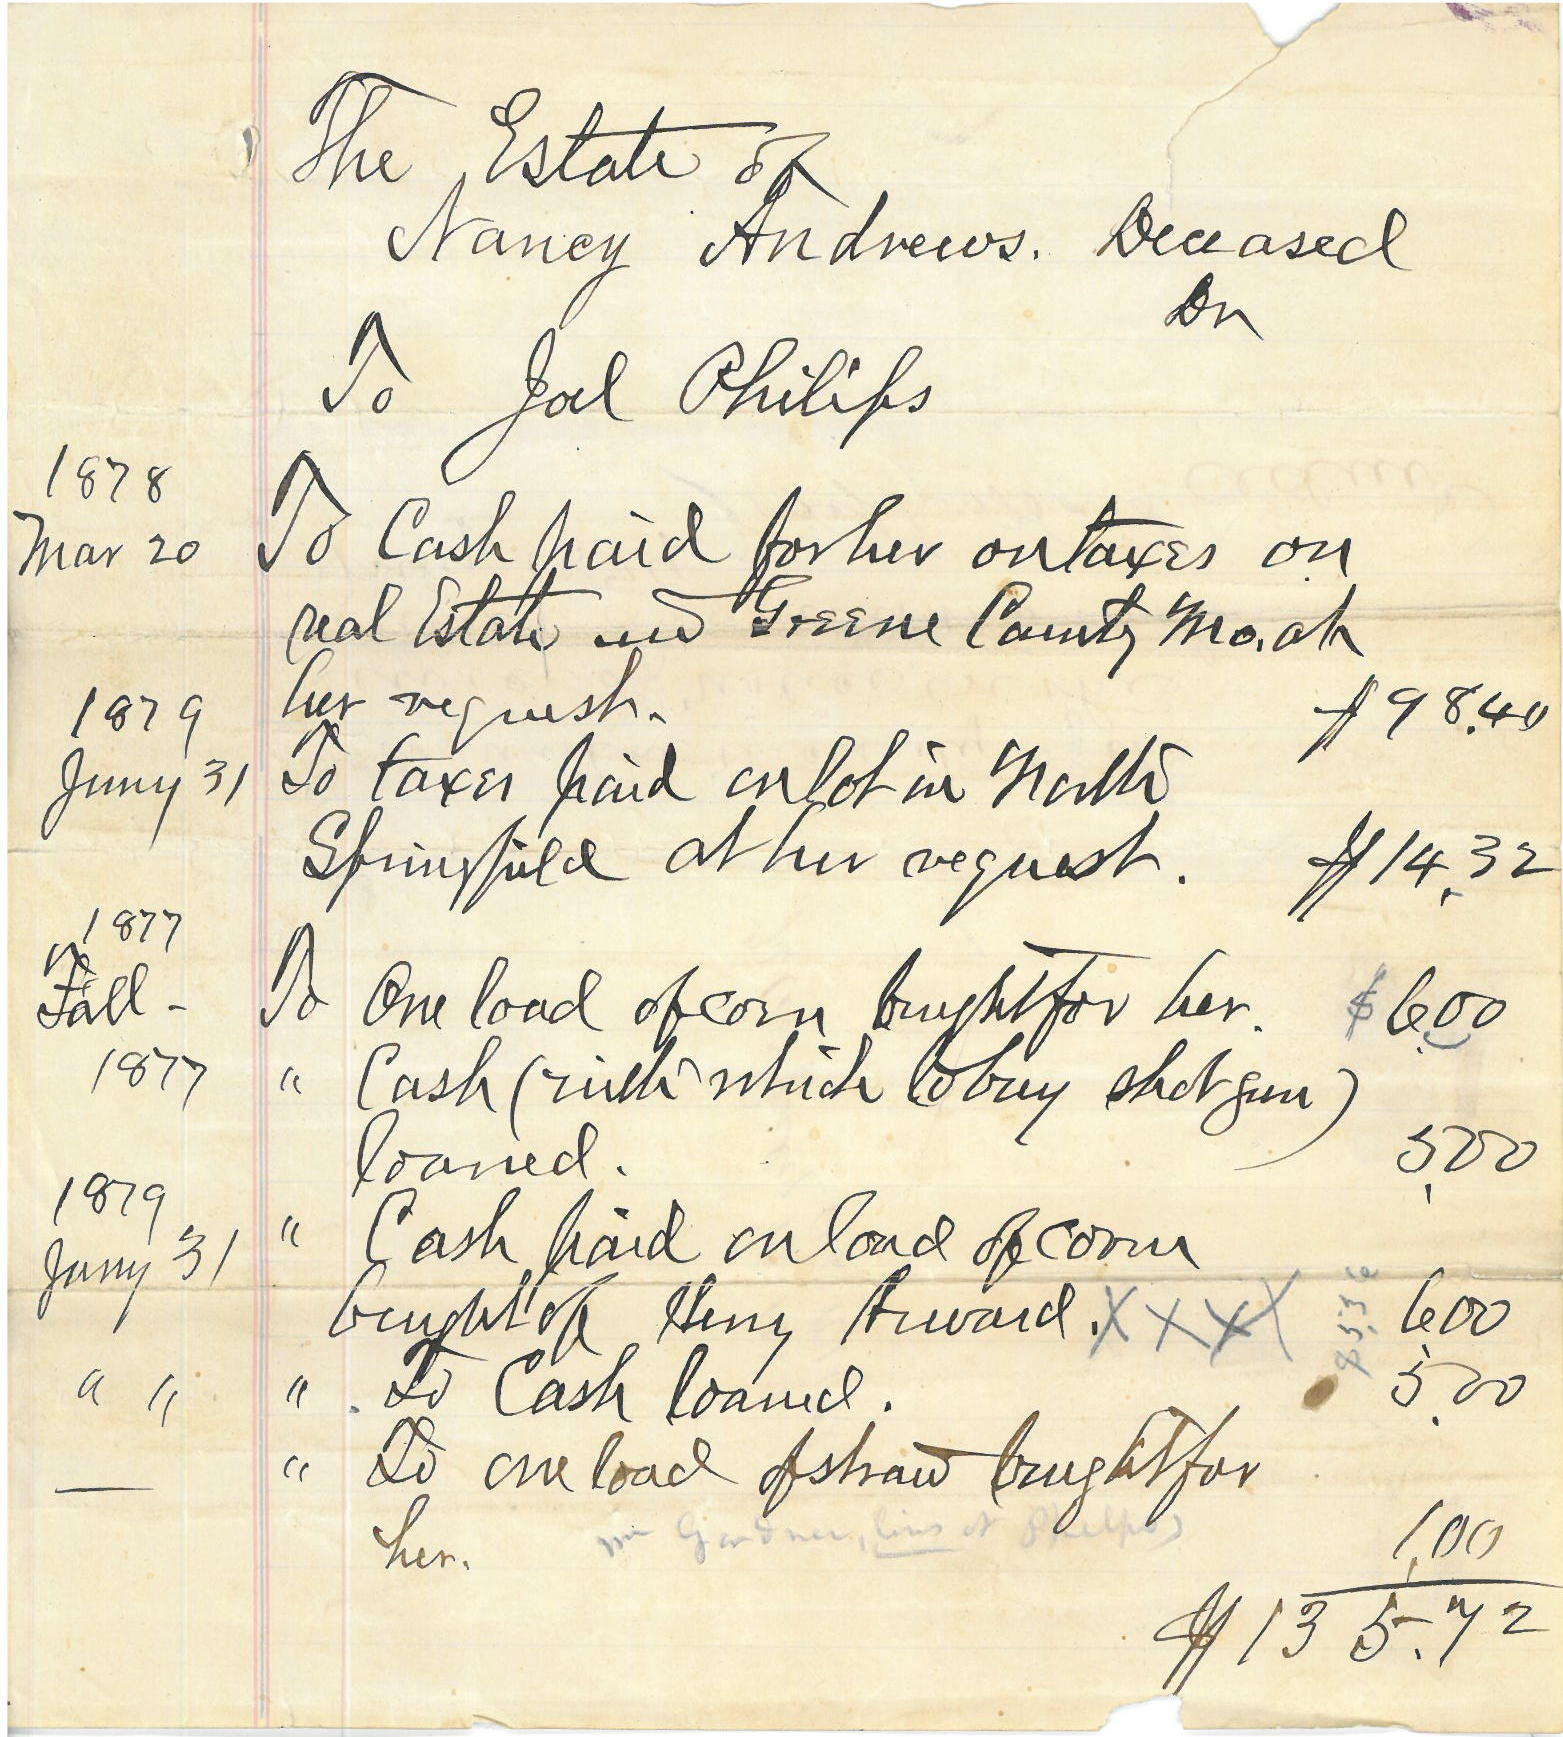 The Estate of
Nancy Andrews. Deceased
Dr
To Joel Philips
1878
Mar 20 To Cash paid for her on taxes on
real Estate in Greene County Mo. at
her request. $98.40
1879
Jany 31 To taxes paid on lot in North
Springfield at her request. $14.32
1877
Fall - To One load of corn bought for her. $6.00
1877 " Cash (with which to buy shot gun)
loaned. 5.00
1879
Jany 31 " Cash paid on load of corn
bought of Henry XXXX 6.00
" " " To Cash loaned. 5.00
— " To one load of straw bought for
her. 1.00
mr Gardner, lives at Phelps
$135.72